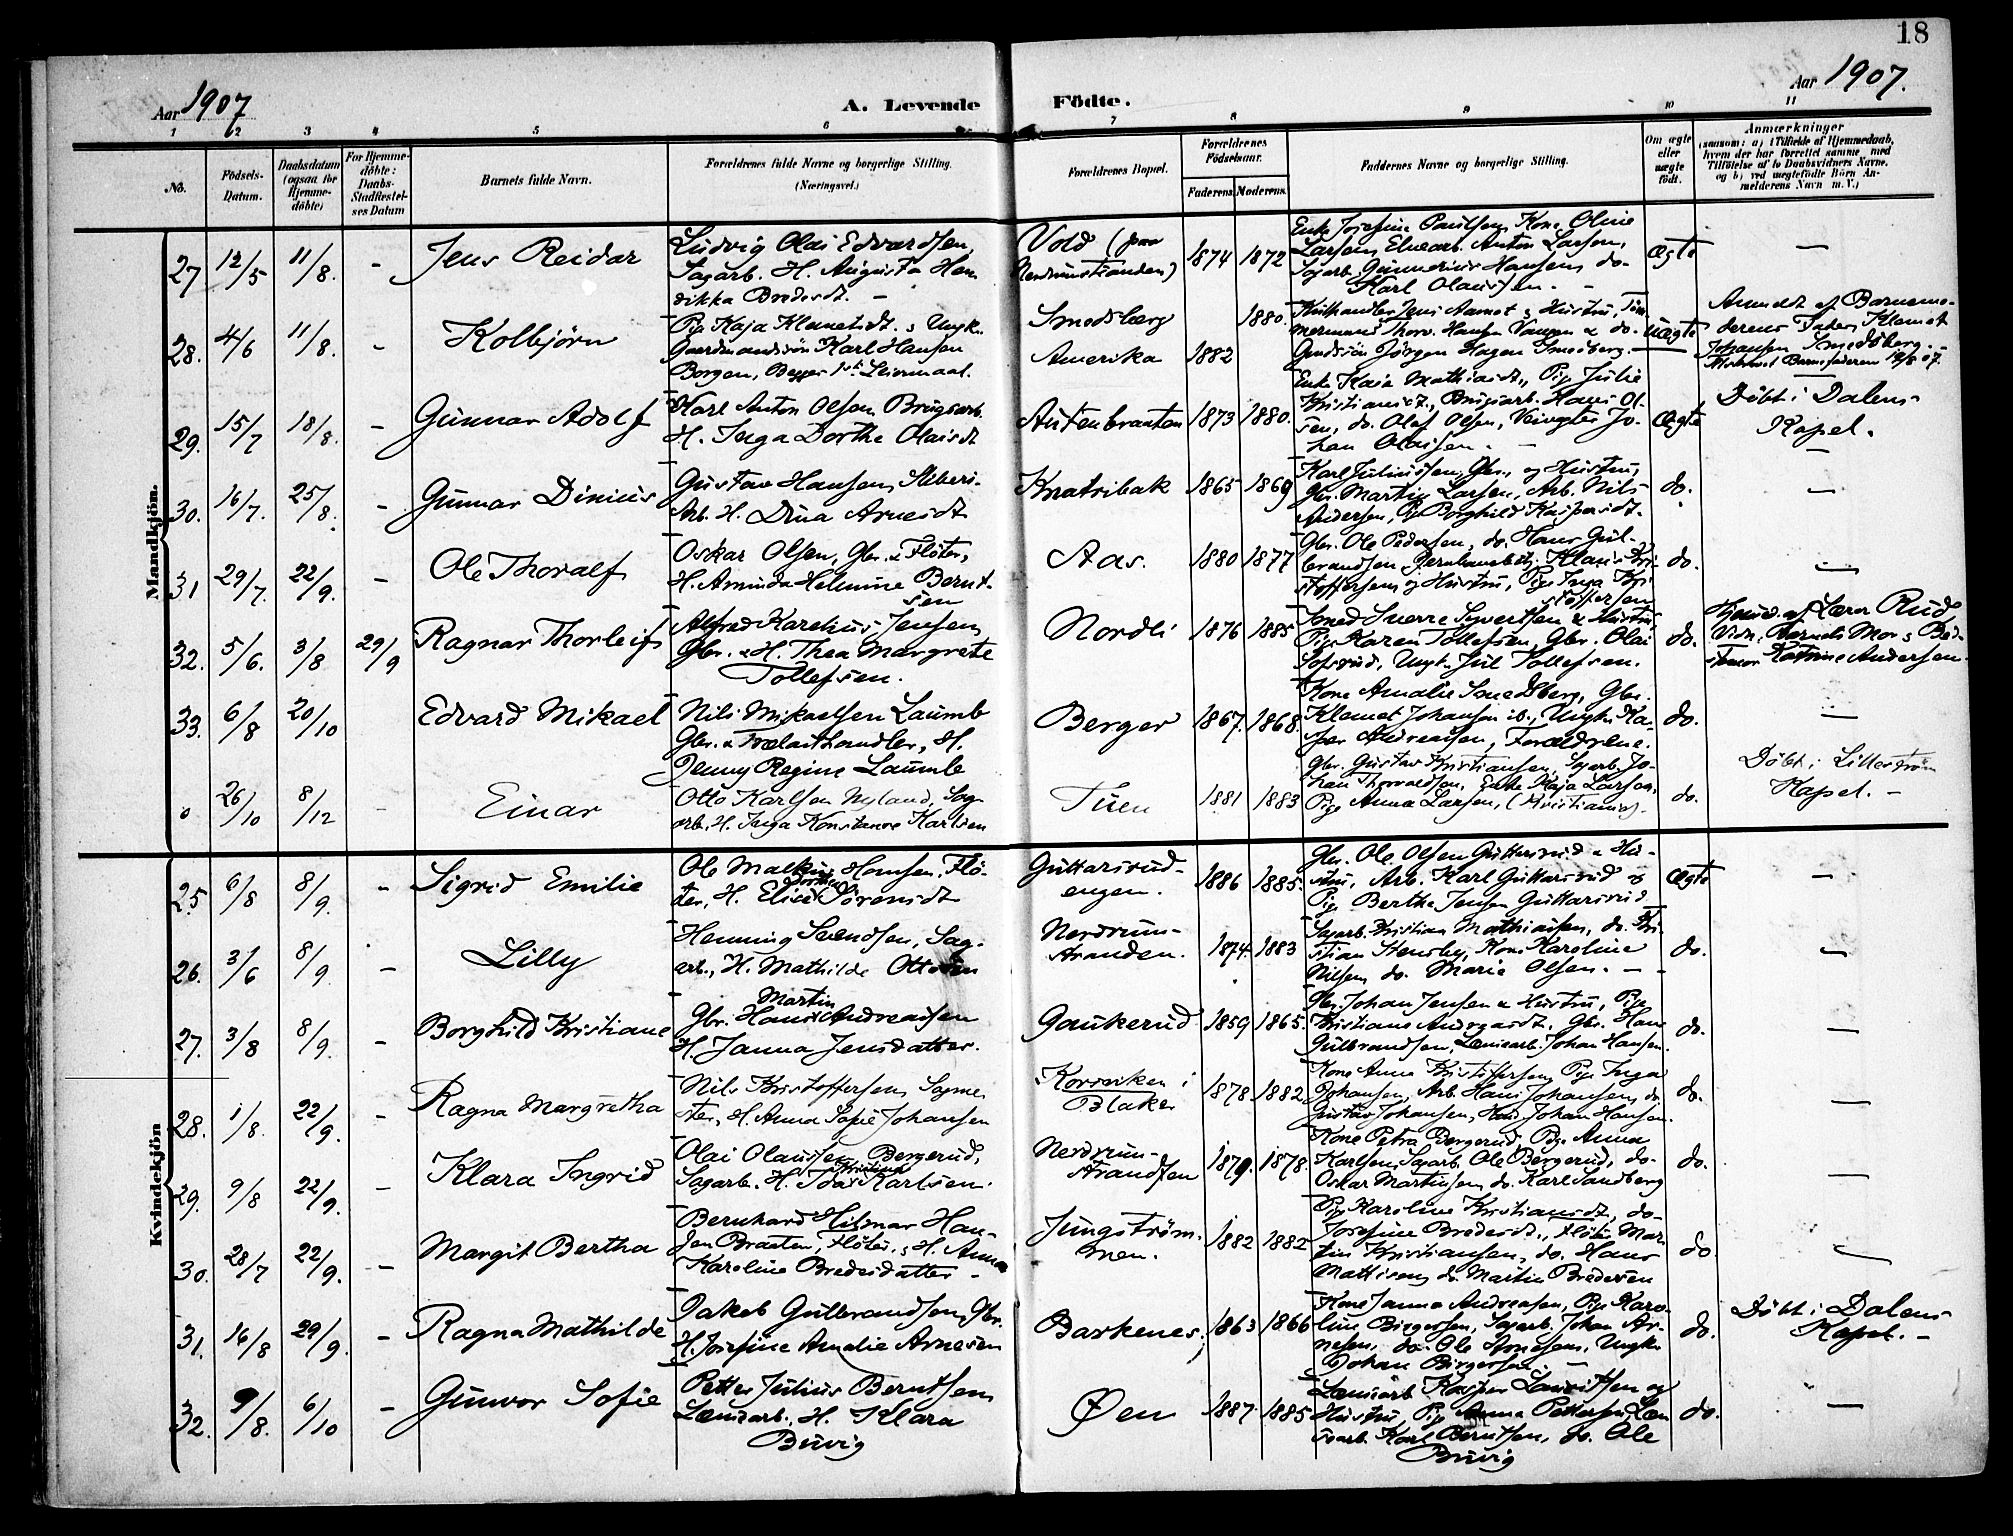 18
Aar 1907
A. Levende Födte.
Aar 1907.
1 2 3 4 5 6 7 8 9 10 11
No.
Födsels-
Datum.
Daabsdatum
(ogsaa for
Hjemme-
döbte)
For Hjemme-
döbte:
Daabs-
Stadfæstel-
ses Datum
Barnets fulde Navn.
Forældrenes fulde Navne og borgerlige Stilling.
(Næringsvei.)
Forældrenes Bopæl.
Forældrenes
Födselsaar.
Faderens. Moderens.
Faddernes Navne og borgerlige Stilling.
Om ægte
eller
uægte
födt.
Anmærkninger
(saasom: a) i Tilfælde af Hjemmedaab,
hvem der har forrettet samme med
Tilföielse af to Daabsvidners Navne,
og b) ved uægtefödte Börn An-
melderens Navn m. V.)
Mandkjön.
27 12/5 11/8. - Jens Reidar
Ludvig Olai Edvardsen,
Sagarb. H. Augusta Hen
rikka Bredesdt. -
Vold (paa
Nerdrumstranden)
1874 1872
Enke Josefine Paulsen, Kone Oline
Larsen, Elvearb. Anton Larsen,
Sagarb. Gunnerius Hansen, do-
Karl Olaussen. -
Ægte —
28. 4/6 11/8. - Kolbjörn
Pige Kaja Klemetsdt. & Ungk.
Gaardmandssön Karl Hansen
Borgen, Begges 1ste Leiermaal.
Smedsberg
Amerika
1882 1880.
Kulhandler Jens Aamot & Hustru, Töm-
mermand Thorv. Hansen Vangen & do.
Gaardssön Jörgen Hagen Smedsberg. -
uægte
Anmeldt af Barnemo-
derens Fader Klemet
Johansen Smedsberg. -
29. 15/7 18/8. - Gunnar Adolf
Karl Anton Olsen Brugsarb.
H. Inga Dorthe Olaisdt
Autenbraaten 1873 1880.
Enke Kaia Mathiasdt., Pige Julie
Kristiansdt., Brugsarb. Hans Ol-
sen, do. Olaf Olsen, Veivogter Jo-
han Olaissen. -
Ægte
Döbt i Dalens
Kapel.
30. 16/7. 25/8. - Gunnar Dinius
Gustav Hansen, Stiberi-
Arb. H. Dina Arnesdt
Knatribak 1865 1869
Karl Juliussen, Gbr. og Hustru,
Gbr. Martin Larsen, Arb. Nils
Andersen, Pige Borghild Kaspersdt.
do. —
31 29/7. 22/9. - Ole Thoralf
Oskar Olsen, Gbr. & Flöter,
H. Aminda Helmine Bernt-
sen
Aas. 1880 1877
Gbr. Ole Pedersen, do. Hans Gul-
brandsen, Jernbanebetj. Klaus Kri-
stoffersen og Hustru, Pige Inga Kri
stoffersen
do. —
32. 5/6. 3/8 29/9 Ragnar Thorleif
Alfred Karelius Jensen
Gbr. & H. Thea Margrete
Tollefsen.
Nordli 1876 1885
Smed Sverre Syvertsen & Hustru,
Pige Karen Tollefsen, Gbr. Olai
Sofsrud, Ungk. Jul Tollefsen.
do.
Hjemd. af Lærer Rud
Vidn. Barnets Mor & Bed-
stemor Katrine Andersen.
33. 6/8 20/10 Edvard Mikael
Nils Mikaelsen Laumb
Gbr. & Trælasthandler, H.
Jenny Regine Laumb
Berger 1867. 1868.
Kone Amalie Smedsberg, Gbr.
Klemet Johansen ib., Ungk. Ka-
sper Andreassen, Forældrene.
do. —
0 26/10 8/12 - Einar
Otto Karlsen Nyland, Sag
arb. H. Inga Konstanse Karlsen
Tuen 1881 1883
Gbr. Gustav Kristiansen, Sagarb. Jo-
han Thorvaldsen, Enke Kaja Larsen,
Pige Anna Larsen, (Kristiania).
do.
Döbt i Lilleström
Kapel. -
Kvindekjön
25. 6/8 8/9. - Sigrid Emilie
Ole Malkus Hansen, Flö-
ter, H. Elise Dorthea Sörensdt
Guttersrud-
engen.
1886 1885.
Gbr. Ole Olsen Guttersrud & Hu-
stru, Arb. Karl Guttersrud &
Pige Bertha Jensen Guttersrud
Ægte —
26. 3/6 8/9. - Lilly
Henning Svendsen, Sag-
arb., H. Mathilde Ottesen
Nerdrum-
stranden.
1874. 1883
Sagarb. Kristian Mathiassen, do. Kri-
stian Stensby, Kone Karoline
Nilsen, do. Marie Olsen. -
do. —
27. 3/8 8/9. - Borghild Kristiane
Gbr. Hans Martin Andreassen
H. Janna Jensdatter.
Gaukerud 1859 1865.
Gbr. Johan Jensen & Hustru, Pige
Kristiane Andreasdt. Gbr. Hans
Gulbrandsen, Lænsearb. Johan Hansen.
do. —
28. 1/8. 22/9. - Ragna Margretha
Nils Kristoffersen, Sagme
ster, H. Anna Sofie Johansen
Korsviken i
Blaker
1878 1882
Kone Anna Kristoffersen, Pige Inga
Johansen, Arb. Hans Johansen, do.
Gustav Johansen, Johan Hansen.
do. —
29. 9/8 22/9. - Klara Ingrid
Olai Olaussen Bergerud,
Sagarb. H. Ida Kristina Karlsen.
Nerdrum-
strandsen
1879. 1878.
Kone Petra Bergerud, Pige Anna
Karlsen, Sagarb. Ole Bergerud, do-
Oskar Martinsen, do. Karl Sandberg
do. —
30. 28/7 22/9. - Margit Bertha
Bernhard Hilmar Han-
sen Braaten, Flöter, & H. Anna
Karoline Bredesdatter -
Jungström.
men.
1882 1882
Pige Karoline Kristiansdt, do-
Josefine Bredesdt., Flöter Mar-
tin Kristiansen, do. Hans
Mathisen, do Martin Bredesen
do. —
31. 16/8 29/9. - Ragna Mathilde
Jakob Gulbrandsen, Gbr.
H. Josefine Amalie Arnesen
Barkenes. 1863 1866
Kone Janna Andreasen, Pige Karo-
line Birgersen, Sagarb. Johan Ar-
nesen, do. Ole Arnesen, Ungk.
Johan Birgersen. -
do.
Döbt i Dalens
Kapel. -
32. 9/8. 6/10 - Gunvor Sofie
Petter Julius Berntsen
Lænsearb. H. Klara
Buvig
Øen 1887. 1885
Lænsearb. Kasper Lauritsen og
Hustru, Pige Anna Pettersen, Læn
searb. Karl Berntsen, do. Ole
Buvig
do. —